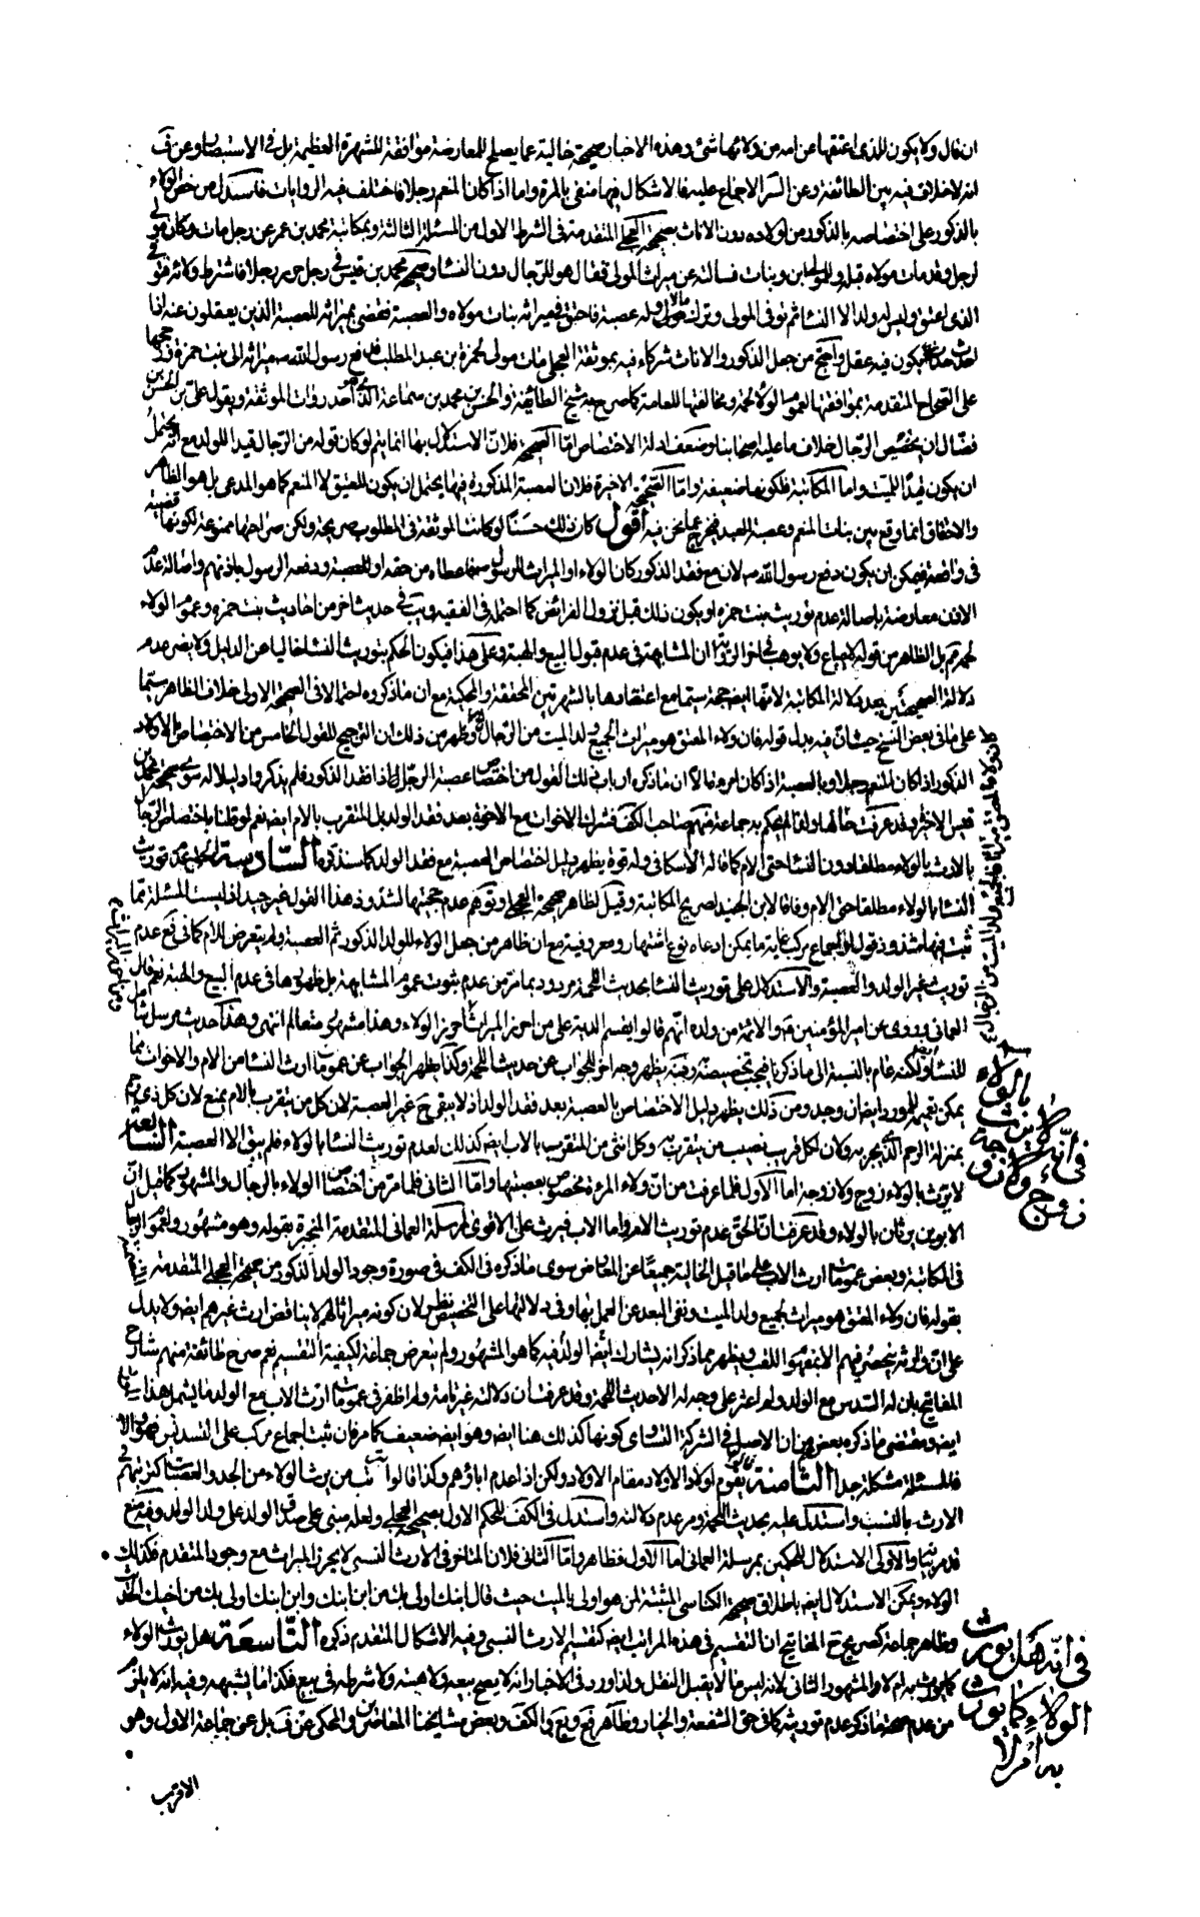 ان قال ولا يكون للذى اعتقها عن امه من ولائها شئ وهذه الاخبار صحيحة خالية عما يصلح للمعارضة موافقة للشهرة العظيمة بل فى الاستبصار وعن ف
انه لا خلاف فيه بين الطائفة وعن السرائر الاجماع عليه فالاشكال فيها منفى بالمرة واما اذا كان المنعم رجلا فاختلف فيه الروايات فاستدل من خص الولاء
بالذكور على اختصاصه بالذكور من اولاده دون الاناث بصحيحة العجلى المتقدمة فى الشرط الاول من المسئلة الثالثة وبمكاتبة محمد بن عمر عن رجل مات وكان مولى
لرجل وقد مات مولاه قبله وللمولى ابن وبنات فسالته عن ميراث المولى فقال هو للرجال دون النساء وصحيحة محمد بن قيس فى رجل حرر رجلا فاشترط ولائه فتوفى
الذى اعتق وليس له ولد الا النساء ثم توفى المولى وترك مالا وله عصبة فاحتق فى ميراثه بنات مولاه والعصبة فقضى بميراثه للعصبة الذين يعقلون عنه اذا
احدث حدثا يكون فيه عقل واحتج من جعل الذكور والاناث شركاء فيه بموثقة البجلى مات مولى لحمزة بن عبد المطلب فدفع رسول الله ميراثه الى بنت حمزة ورجحها
على الصحاح المتقدمة بموافقتها لعموم الولاء لحمة ومخالفتها للعامة كما صرح به شيخ الطائفة والحسن بن محمد بن سماعة الذى هو احد روات الموثقة وبقول على بن الحسن بن
فضال ان تخصيص الرجال خلاف ما عليه اصحابنا وضعف ادلة الاختصاص اما الصحيحة فلان الاستدلال بها انما يتم لو كان قوله من الرجال قيدا للولد مع انه يحتمل
ان يكون قيدا للميت واما المكاتبة فلكونها ضعيفة واما الصحيحة الاخيرة فلان العصبة المذكورة فيها يحتمل ان يكون للعتيق لا المنعم كما هو المدعى بل هو الظاهر
والاحتقاق انما وقع بين بنات المنعم وعصبة العبد فيخرج عما نحن فيه اقول كان ذلك حسنا لو كانت الموثقة فى المطلوب صريحة ولكن صراحتها ممنوعة لكونها قضية
فى واقعة فيمكن ان يكون دفع رسول الله لان مع فقد الذكور كان الولاء او الميراث للرسول اعطاه من حقه او للعصبة ودفعه الرسول باذنهم واصالة عدم
الاذن معارضة باصالة عدم توريث بنت حمزه او يكون ذلك قبل نزول الفرائض كما احتمله فى الفقيه ويب فى حديث اخر من احاديث بنت حمزه وعموم الولاء
لحمة بل الظاهر من قوله لا يباع ولا يوهب فى اخر الرواية ان المشابهة فى عدم قبول البيع والهبة وعلى هذا فيكون الحكم بتوريث النساء خاليا عن الدليل ولا يضر عدم
دلالة الصحيحتين بعد دلالة المكاتبة لانها ايضا حجة سيما مع اعتضادها بالشهرتين المحققة والمحكية مع ان ما ذكروه احتمالا فى الصحيحة الاولى خلاف الظاهر سيما
على ما فى بعض النسخ حيث ان فيه بدل قوله فان ولاء المعتق هو ميراث لجميع ولد الميت من الرجال وظهر من ذلك ان الترجيح للقول الخامس من الاختصاص بالاولاد
الذكور اذا كان المنعم رجلا وبالعصبة اذا كان امرءة الا ان ما ذكره ارباب ذلك القول من اختصاص عصبة الرجل اذا فقد الذكور فلم يذكروا دليلا له سوى صحيحة محمد بن
قيس الاخيرة وقد عرفت حالها ولذا لم يحكم به جماعة منهم صاحب الكف فشرك الاخوات مع الاخوة بعد فقد الولد بل المتقرب بالام ايضا نعم لو قلنا باختصاص الرجال
بالارث بالولاء مطلقا دون النساء حتى الام كما قاله الاسكافى وله قوة يظهر دليل اختصاص العصبة مع فقد الولد كما سنذكره السادسة الحق عدم توريث
النساء بالولاء مطلقا حتى الام وفاقا لابن الجنيد لصريح المكاتبة وقيل لظاهر صحيحة العجلى وتوهم عدم حجيتها لشذوذ هذا القول غير جيد اذ ليست المسئلة مما
ثبت فيها شذوذ قول او اجماع مركب غاية ما يمكن ادعاه نوع اشتهار ومعروفية مع ان ظاهر من جعل الولاء للولد الذكور ثم العصبة ولم يتعرض للام كما فى يع عدم
توريث غير الولد والعصبة والاستدلال على توريث النساء بحديث اللحمة مردود بما مر من عدم ثبوت عموم المشابهة بل ظهورها فى عدم البيع والهبة نعم قال
العمانى وروى عن امير المؤمنين والائمة من ولده انهم قالوا يقسم الدية على من احرز الميراث احرز الولاء وهذا مشهور متعالم انتهى وهذا حديث مرسل شامل
للنساء ولكنه عام بالنسبة الى ما ذكرنا فيجب تخصيصه وبه يظهر وجه اخر للجواب عن حديث اللحمة وكذا يظهر الجواب عن عمومات ارث النساء من الام والاخوات مما
يمكن تعميمه للمورد ايضا ان وجد ومن ذلك يظهر دليل الاختصاص بالعصبة بعد فقد الولد اذ لا يبقى ح غير العصبة لان كل من يتقرب بالام يمنع لان كل ذى رحم
بمنزلة الرحم الذى يجر به وكان لكل قريب نصيب من يتقرب به وكل انثى من المتقرب بالاب ايضا كذلك لعدم توريث النساء بالولاء فلم يبق الا العصبة السابعة
لا يرث بالولاء زوج ولا زوجة اما الاول فلما عرفت من ان ولاء المرءة مخصوص بعصبتها واما الثانى فلما مر من اختصاص الولاء بالرجال والمشهور كما قيل ان
الابوين يرثان بالولاء وقد عرفت ان الحق عدم توريث الام واما الاب فيرث على الاقوى لمرسلة العمانى المتقدمة المنجبرة بقوله وهو مشهور ولعموم الرجال
فى المكاتبة وبعض عمومات ارث الاب على ما قيل الخالية جميعا عن المعارض سوى ما ذكره فى الكف فى صورة وجود الولد الذكور من صحيحة العجلى المتقدمة
بقوله فان ولاء المعتق هو ميراث لجميع ولد الميت ونفى البعد عن العمل بها وفى دلالتها على التخصيص نظر لان كونه ميراثا لهم لا يناقض ارث غيرهم ايضا ولا يدل
على ان وارثه ينحصر فيهم الا بمفهوم اللقب ويظهر مما ذكر انه يشارك ايضا الولد فيه كما هو المشهور ولم يتعرض جماعة لكيفية التقسيم نعم صرح طائفة منهم شارح
المفاتيح بان له السدس مع الولد ولم اعثر على وجه له الا حديث اللحمة وقد عرفت ان دلالته غير تامة ولم اظفر فى عمومات ارث الاب مع الولد ما يشمل هذا
ايضا ومقتضى ما ذكره بعضهم من ان الاصل فى الشركة التساوى كونها كذلك هنا ايضا وهو ايضا ضعيف كما مر فان ثبت اجماع مركب على التسديس فهو والا
فالمسئلة مشكلة جدا الثامنة قالوا يقوم اولاد الاولاد مقام الاولاد ولكن اذا عدم اباؤهم وكذا قالوا يترتب من يرث الولاء من الجد والعصبات كترتبهم فى
الارث بالنسب واستدل عليه بحديث اللحمة ومر عدم دلالته واستدل فى الكف للحكم الاول بصحيحة العجلى ولعله مبنى على صدق الولد على ولد الولد وفيه منع
قد مر بيانه والاولى الاستدلال للحكمين بمرسلة العمانى اما الاول فظاهر واما الثانى فلان المتاخر فى الارث النسبى لا يحرز الميراث مع وجود المتقدم فكذلك
الولاء ويمكن الاستدلال ايضا باطلاق صحيحة الكناسى المثبتة لمن هو اولى بالميت حيث قال ابنك اولى بك من ابن ابنك وابن ابنك اولى بك من اخيك الحديث
وظاهر جماعة كصريح شرح المفاتيح ان التقسيم فى هذه المراتب ايضا كتقسيم الارث النسبى وفيه الاشكال المتقدم ذكره التاسعة هل يورث الولاء
كما يورث به ام لا والمشهور الثانى لانه ليس مالا يقبل النقل ولذا ورد فى الاخبار انه لا يصح بيعه ولا هبته ولا شرطه فى بيع فكذا ما يشبهه وفيه انه لا يلزم
من عدم صحة ما ذكر عدم توريثه كما فى حق الشفعة والخيار وظاهر يع ويع والكف وبعض مشايخنا المعاصرين والمحكى عن ف بل عن جماعة الاول وهو
الاقرب
فى انه لا يرث بالولاء
زوج ولا زوجة
فى انه هل يورث
الولاء كما يورث
به ام لا